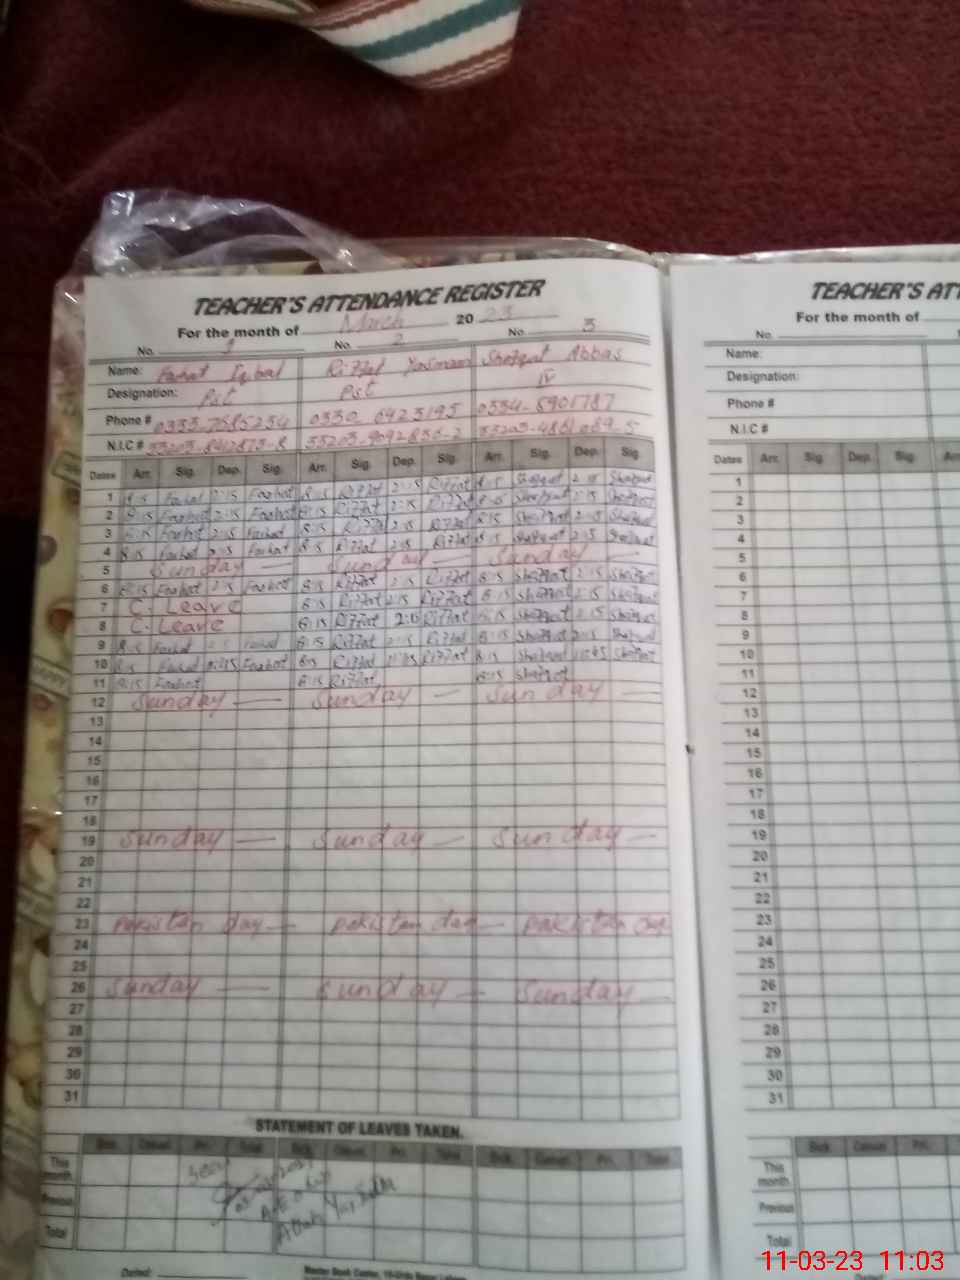 TEACHER'S ATTENDANCE REGISTER
For the month of March 20 23
No. 1 No. 2 No. 3
Name: Farhat Iqbal Riffat Yasmeen Shafqat Abbas
Designation: Pst Pst IV
Phone #
N.I.C #
Dates Arr. Sig. Dep. Sig. Arr. Sig. Dep. Sig. Arr. Sig. Dep. Sig.
1 8:15 Farhat 2:15 Farhat 8:15 Riffat 2:15 Riffat 8:15 Shafqat 2:15 Shafqat
2 8:15 Farhat 2:15 Farhat 8:15 Riffat 2:15 Riffat 8:15 Shafqat 2:15 Shafqat
3 8:15 Farhat 2:15 Farhat 8:15 Riffat 2:15 Riffat 8:15 Shafqat 2:15 Shafqat
4 8:15 Farhat 2:15 Farhat 8:15 Riffat 2:15 Riffat 8:15 Shafqat 2:15 Shafqat
5 Sunday — Sunday — Sunday —
6 8:15 Farhat 2:15 Farhat 8:15 Riffat 2:15 Riffat 8:15 Shafqat 2:15 Shafqat
7 C. Leave 8:15 Riffat 2:15 Riffat 8:15 Shafqat 2:15 Shafqat
8 C. Leave 8:15 Riffat 2:15 Riffat 8:15 Shafqat 2:15 Shafqat
9 8:15 Farhat Farhat 8:15 Riffat 2:15 Riffat 8:15 Shafqat 2:15 Shafqat
10 8:15 Farhat Farhat 8:15 Riffat Riffat 8:15 Shafqat Shafqat
11 8:15 Farhat 8:15 Riffat 8:15 Shafqat
12 Sunday — Sunday — Sunday —
13
14
15
16
17
18
19 Sunday — Sunday — Sunday —
20
21
22
23 Pakistan day — Pakistan day — Pakistan day
24
25
26 Sunday — Sunday — Sunday —
27
28
29
30
31
STATEMENT OF LEAVES TAKEN.
Sick. Casual. Pri. Total Sick. Casual. Pri. Total Sick. Casual. Pri. Total
This month
Previous
Total
Dated:
TEACHER'S ATT
For the month of
No.
Name:
Designation:
Phone #
N.I.C #
Dates Arr. Sig Dep. Sig. Arr
1
2
3
4
5
6
7
8
9
10
11
12
13
14
15
16
17
18
19
20
21
22
23
24
25
26
27
28
29
30
31
Sick Casual. Pri.
This month
Previous
Total
11-03-23 11:03